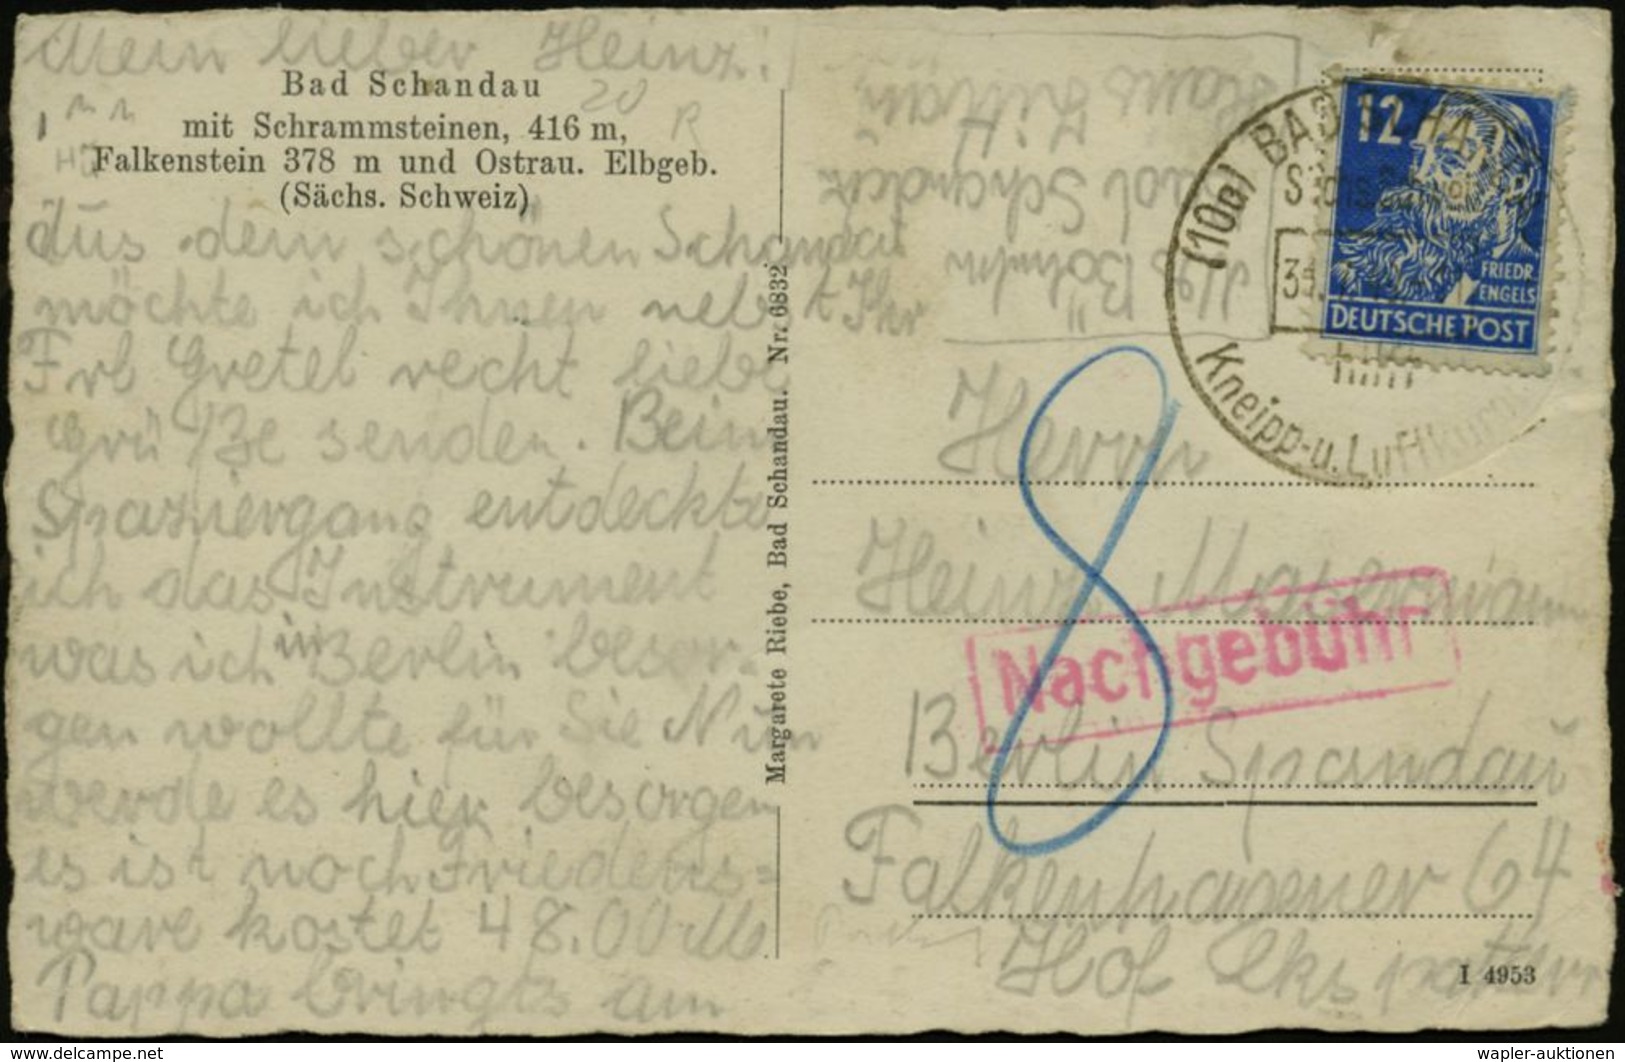 Mein lieber Heinz!
Bad Schandau
mit Schrammsteinen, 416 m,
Falkenstein 378 m und Ostrau. Elbgeb.
(Sächs. Schweiz)
20
R
Aus dem schönen Schandau
möchte ich Ihnen nebst Ihr
Frl Gretel recht liebe
Grüße senden. Beim
Spaziergang entdeckte
ich das Instrument
was ich in Berlin besor-
gen wollte für Sie Nun
werde es hier besorgen
es ist noch Friedens=
ware kostet 48.00 M
Pappa bringts am
Margarete Riebe, Bad Schandau. Nr. 6832
Böhm
Bad Schandau
Haus Zittau
(10a) BAD SCHA
Kneipp- u. Luftku
12
FRIEDR.
ENGELS
DEUTSCHE POST
8
Nachgebühr
Herrn
Heinz
Berlin Spandau
Falkenhagener 64
Hof
I 4953
wapler-auktionen